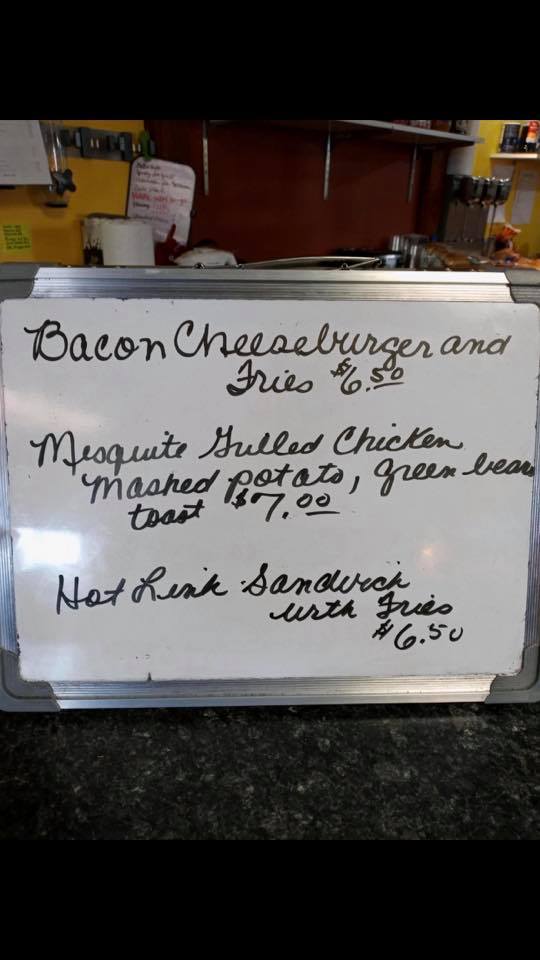 Bacon Cheeseburger and
Fries $6.50
Mesquite Grilled Chicken
Mashed potato, green beans
toast $7.00
Hot Link Sandwich
with Fries
$6.50